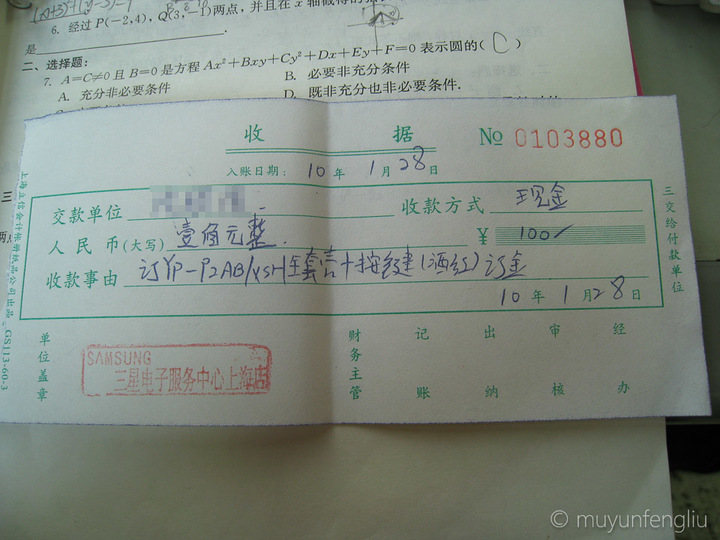 6. 经过 P(-2,4), Q(3,-1)两点, 并且在 x 轴截得的
是
二、选择题:
7. A=C≠0 且 B=0 是方程 Ax²+Bxy+Cy²+Dx+Ey+F=0 表示圆的( C )
A. 充分非必要条件 B. 必要非充分条件
D. 既非充分也非必要条件.
收 据 № 0103880
入账日期: 10 年 1 月 28 日
交款单位 收款方式 现金
人民币(大写) 壹佰元整. ¥ 100
收款事由 订YP-P2AB/XSH 全套壳+按键(酒红)订金
10 年 1 月 28 日
三交给付款单位
上海立信会计账册纸品公司出品 GS113-60-3
单位盖章
财务主管 记账 出纳 审核 经办
SAMSUNG
三星电子服务中心上海店
© muyunfengliu